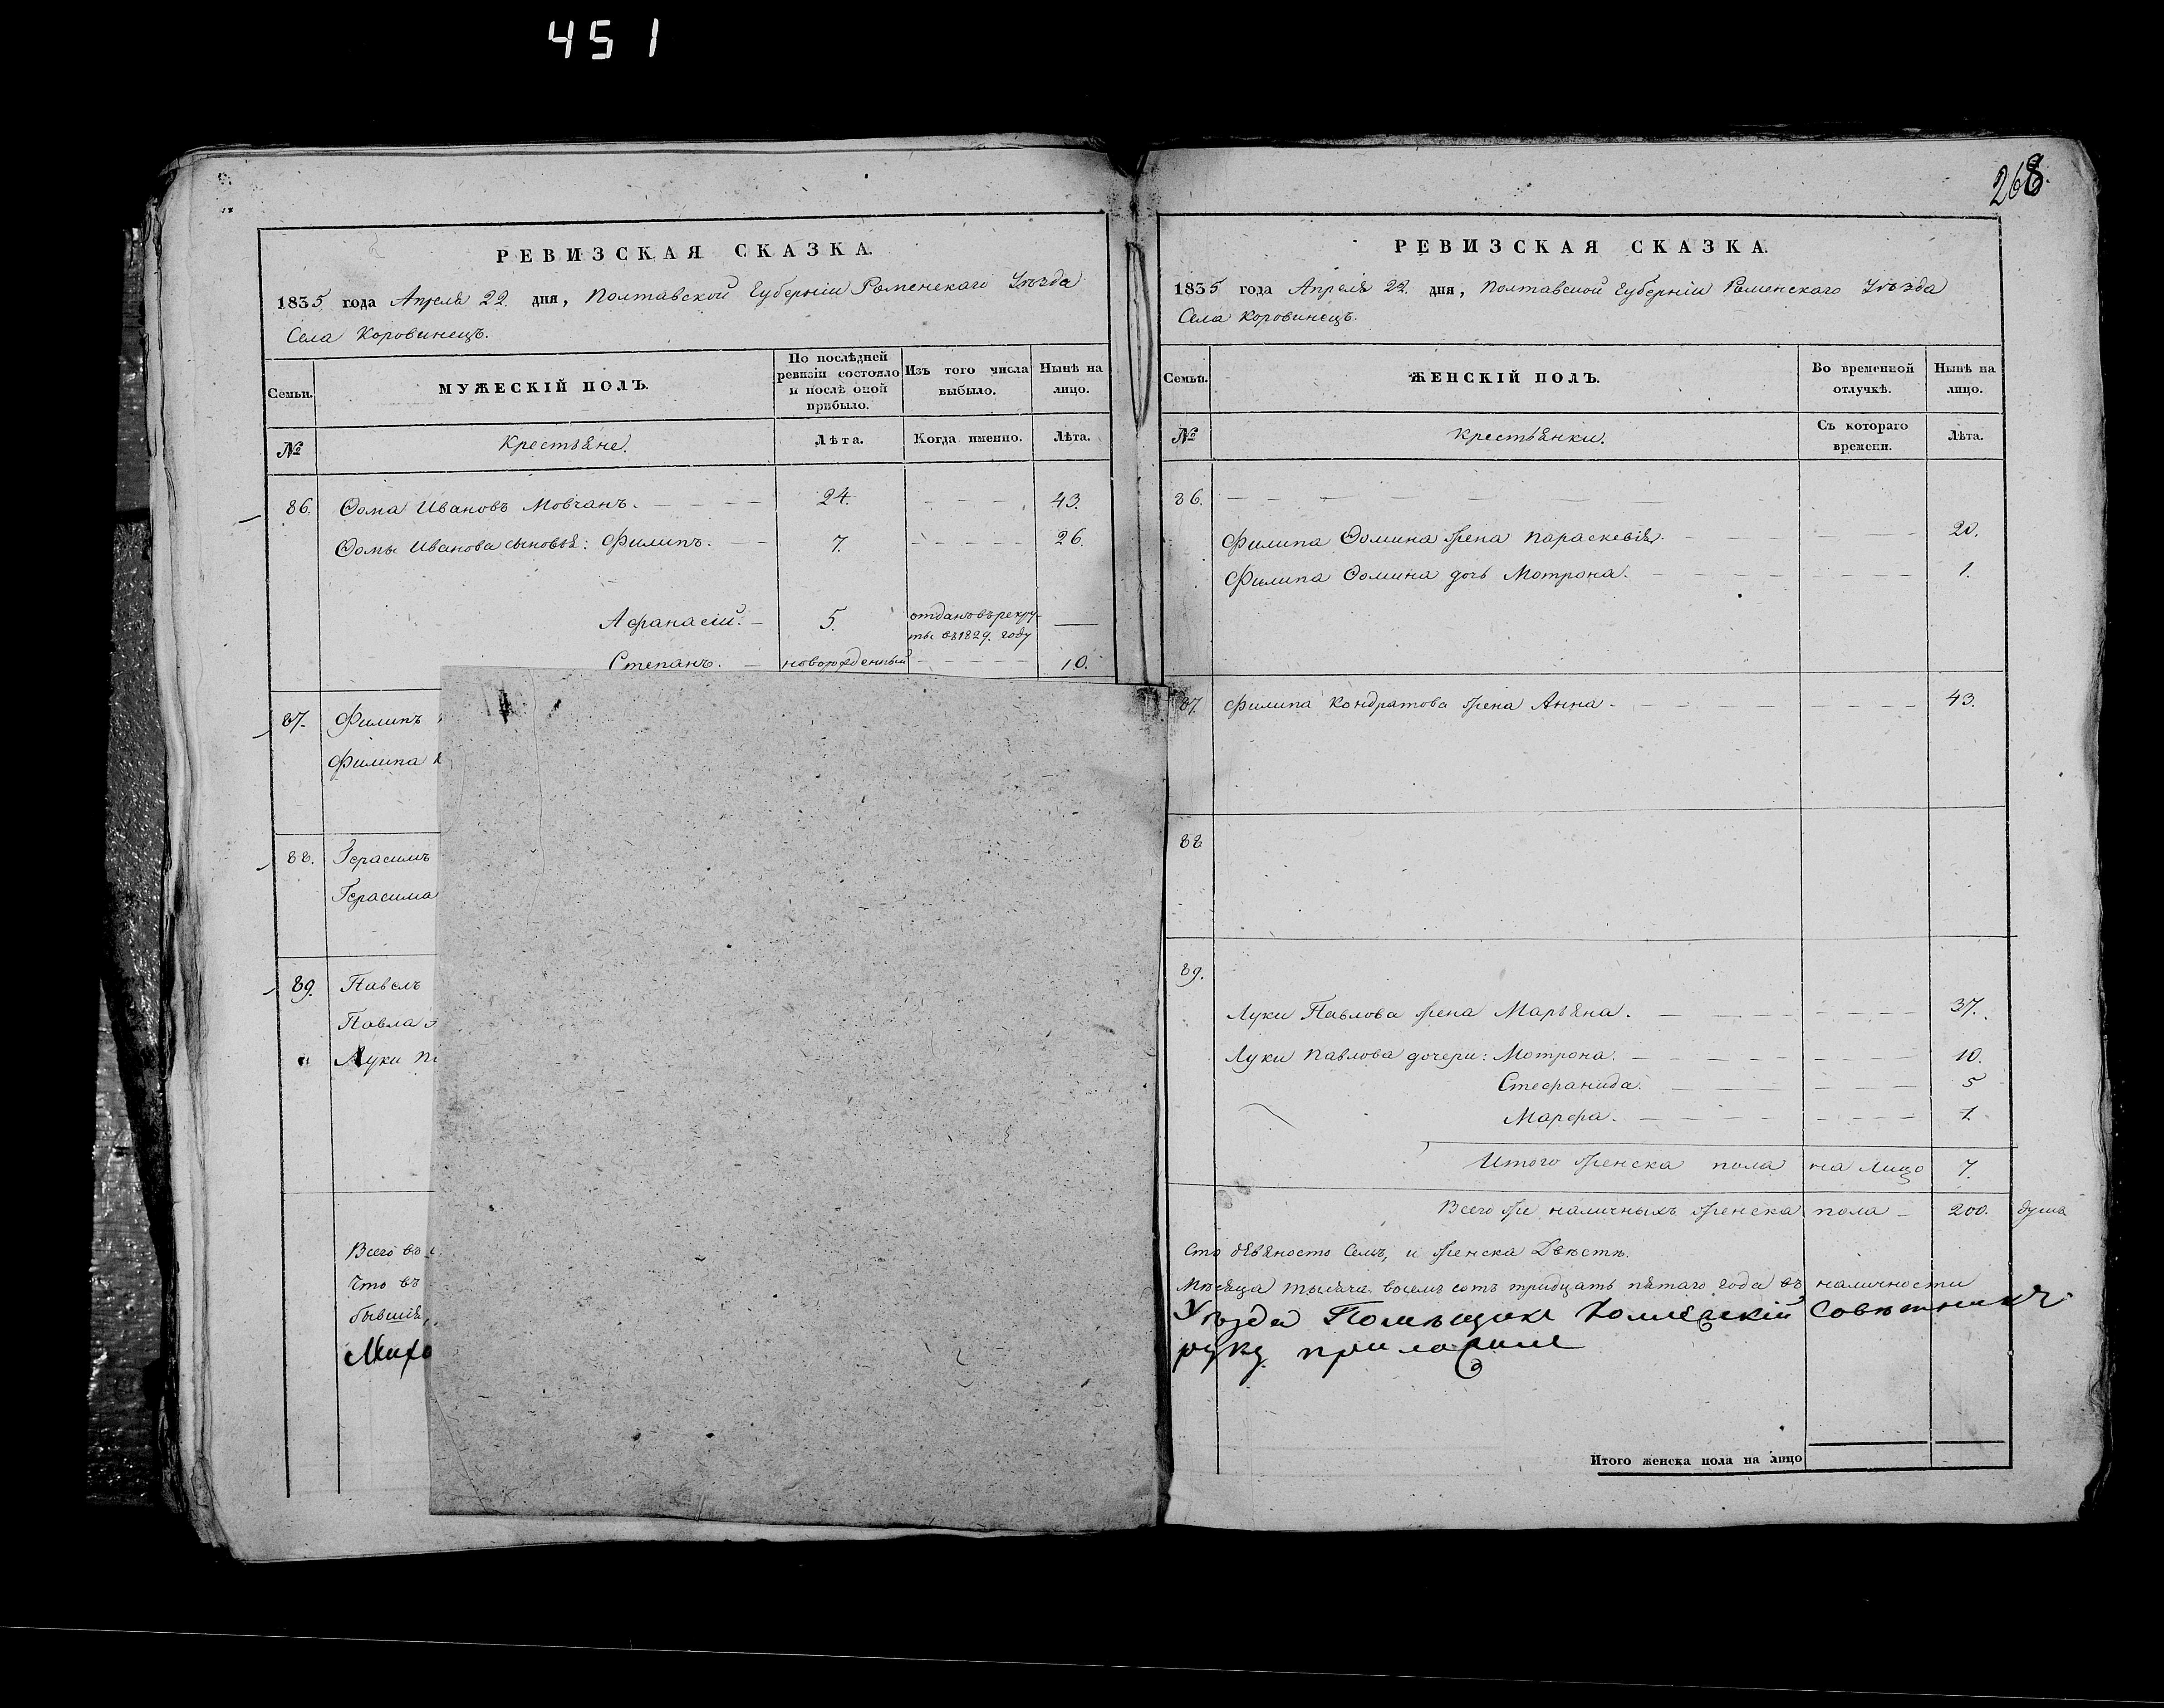 451
268.
РЕВИЗСКАЯ СКАЗКА.
1835 года Апреля 22. дня, Полтавской Губерніи Роменскаго Уѣзда
Села Коровинецъ.
Семьи.
МУЖЕСКІЙ ПОЛЪ.
По послѣдней ревизіи состояло и послѣ оной прибыло.
Изъ того числа выбыло.
Нынѣ на лицо.
№
Крестьяне.
Лѣта.
Когда именно.
Лѣта.
86. Ѳома Ивановъ Мовчанъ. 24. 43.
Ѳомы Иванова сыновья: Филипъ. 7. 26.
Афанасій. 5. отданъ въ рекру-
ты въ 1829. году
Степанъ. новорожденный 10.
87. Филипъ
Филипа
88. Герасимъ
Герасима
89. Павелъ
Павла
Луки
Всего въ
Что въ
бывшія,
РЕВИЗСКАЯ СКАЗКА.
1835 года Апреля 22. дня, Полтавской Губерніи Роменскаго Уѣзда
Села Коровинецъ.
Семьи.
ЖЕНСКІЙ ПОЛЪ.
Во временной отлучкѣ.
Нынѣ на лицо.
№
Крестьянки.
Съ котораго времени.
Лѣта.
86.
Филипа Ѳомина жена Параскевія. 20.
Филипа Ѳомина дочь Мотрона. 1.
87. Филипа Кондратова жена Анна. 43.
88
89.
Луки Павлова жена Марьяна. 37.
Луки Павлова дочери: Мотрона. 10.
Стефанида. 5
Марфа. 1.
Итого женска пола на лицо 7.
Всего же наличныхъ женска пола 200. душъ
Сто девяносто Семь, и женска Двѣсти.
Мѣсяца тысяча восемь сотъ тридцать пятаго года въ наличности
Уѣзда Помѣщикъ Коллежскій Совѣтникъ
руку приложилъ
Итого женска пола на лицо